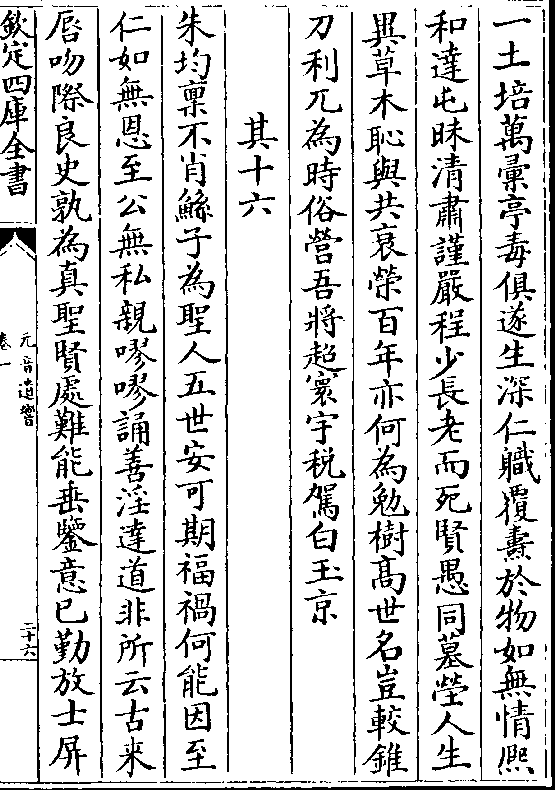 一土培萬彚亭毒俱遂生深仁軄覆燾於物如無情熈
和達屯昧清肅謹嚴程少長老而死賢愚同墓塋人生
異草木恥與共衰榮百年亦何為勉樹髙世名豈較錐
刀利兀為時俗營吾將超寰宇税駕白玉京
其十六
朱均稟不肖鯀子為聖人五世安可期福禍何能因至
仁如無恩至公無私親嘐嘐誦善淫達道非所云古来
唇吻際良史孰為真聖賢處難能垂鑒意已勤放士屏
欽定四庫全書
元音遺響
卷一
二十六